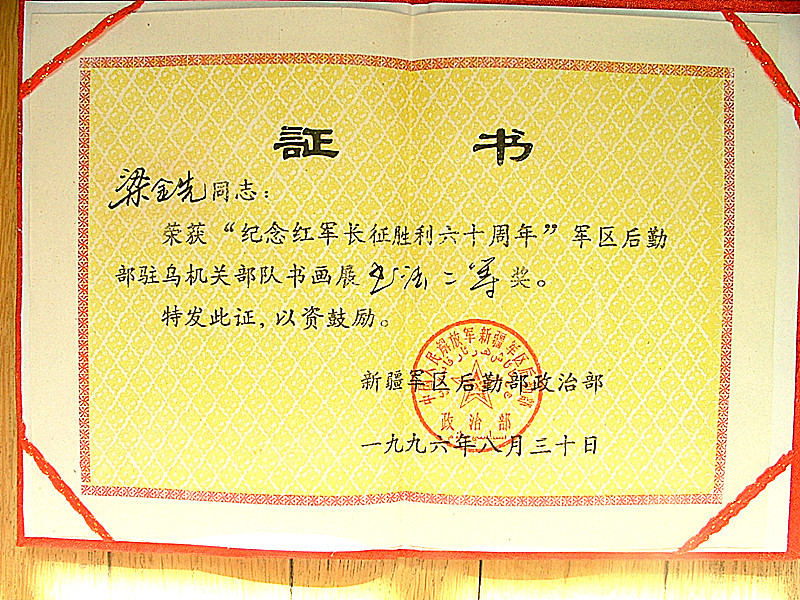 証书
梁金先同志：
荣获“纪念红军长征胜利六十周年”军区后勤
部驻乌机关部队书画展书法二等奖。
特发此证，以资鼓励。
新疆军区后勤部政治部
一九九六年八月三十日
中国人民解放军新疆军区后勤部
政治部